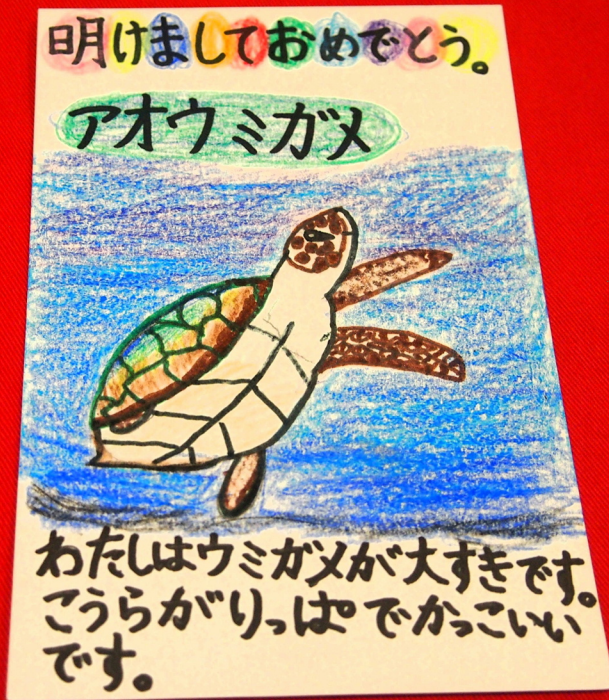 明けましておめでとう。
アオウミガメ
わたしはウミガメが大すきです。
こうらがりっぱでかっこいい
です。